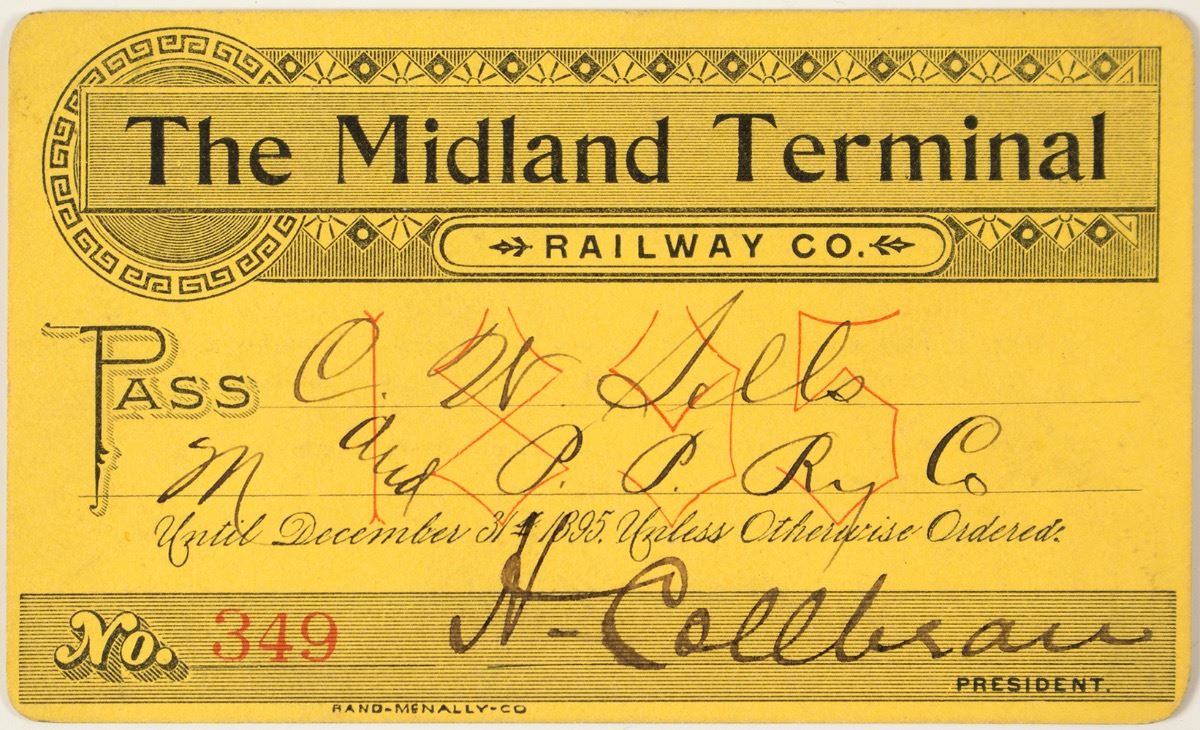 The Midland Terminal
RAILWAY CO.
PASS C. W. Sells
1895
M and P. P. Ry Co
Until December 31st 1895. Unless Otherwise Ordered.
No. 349
H. Collbran
PRESIDENT.
RAND-MCNALLY-CO